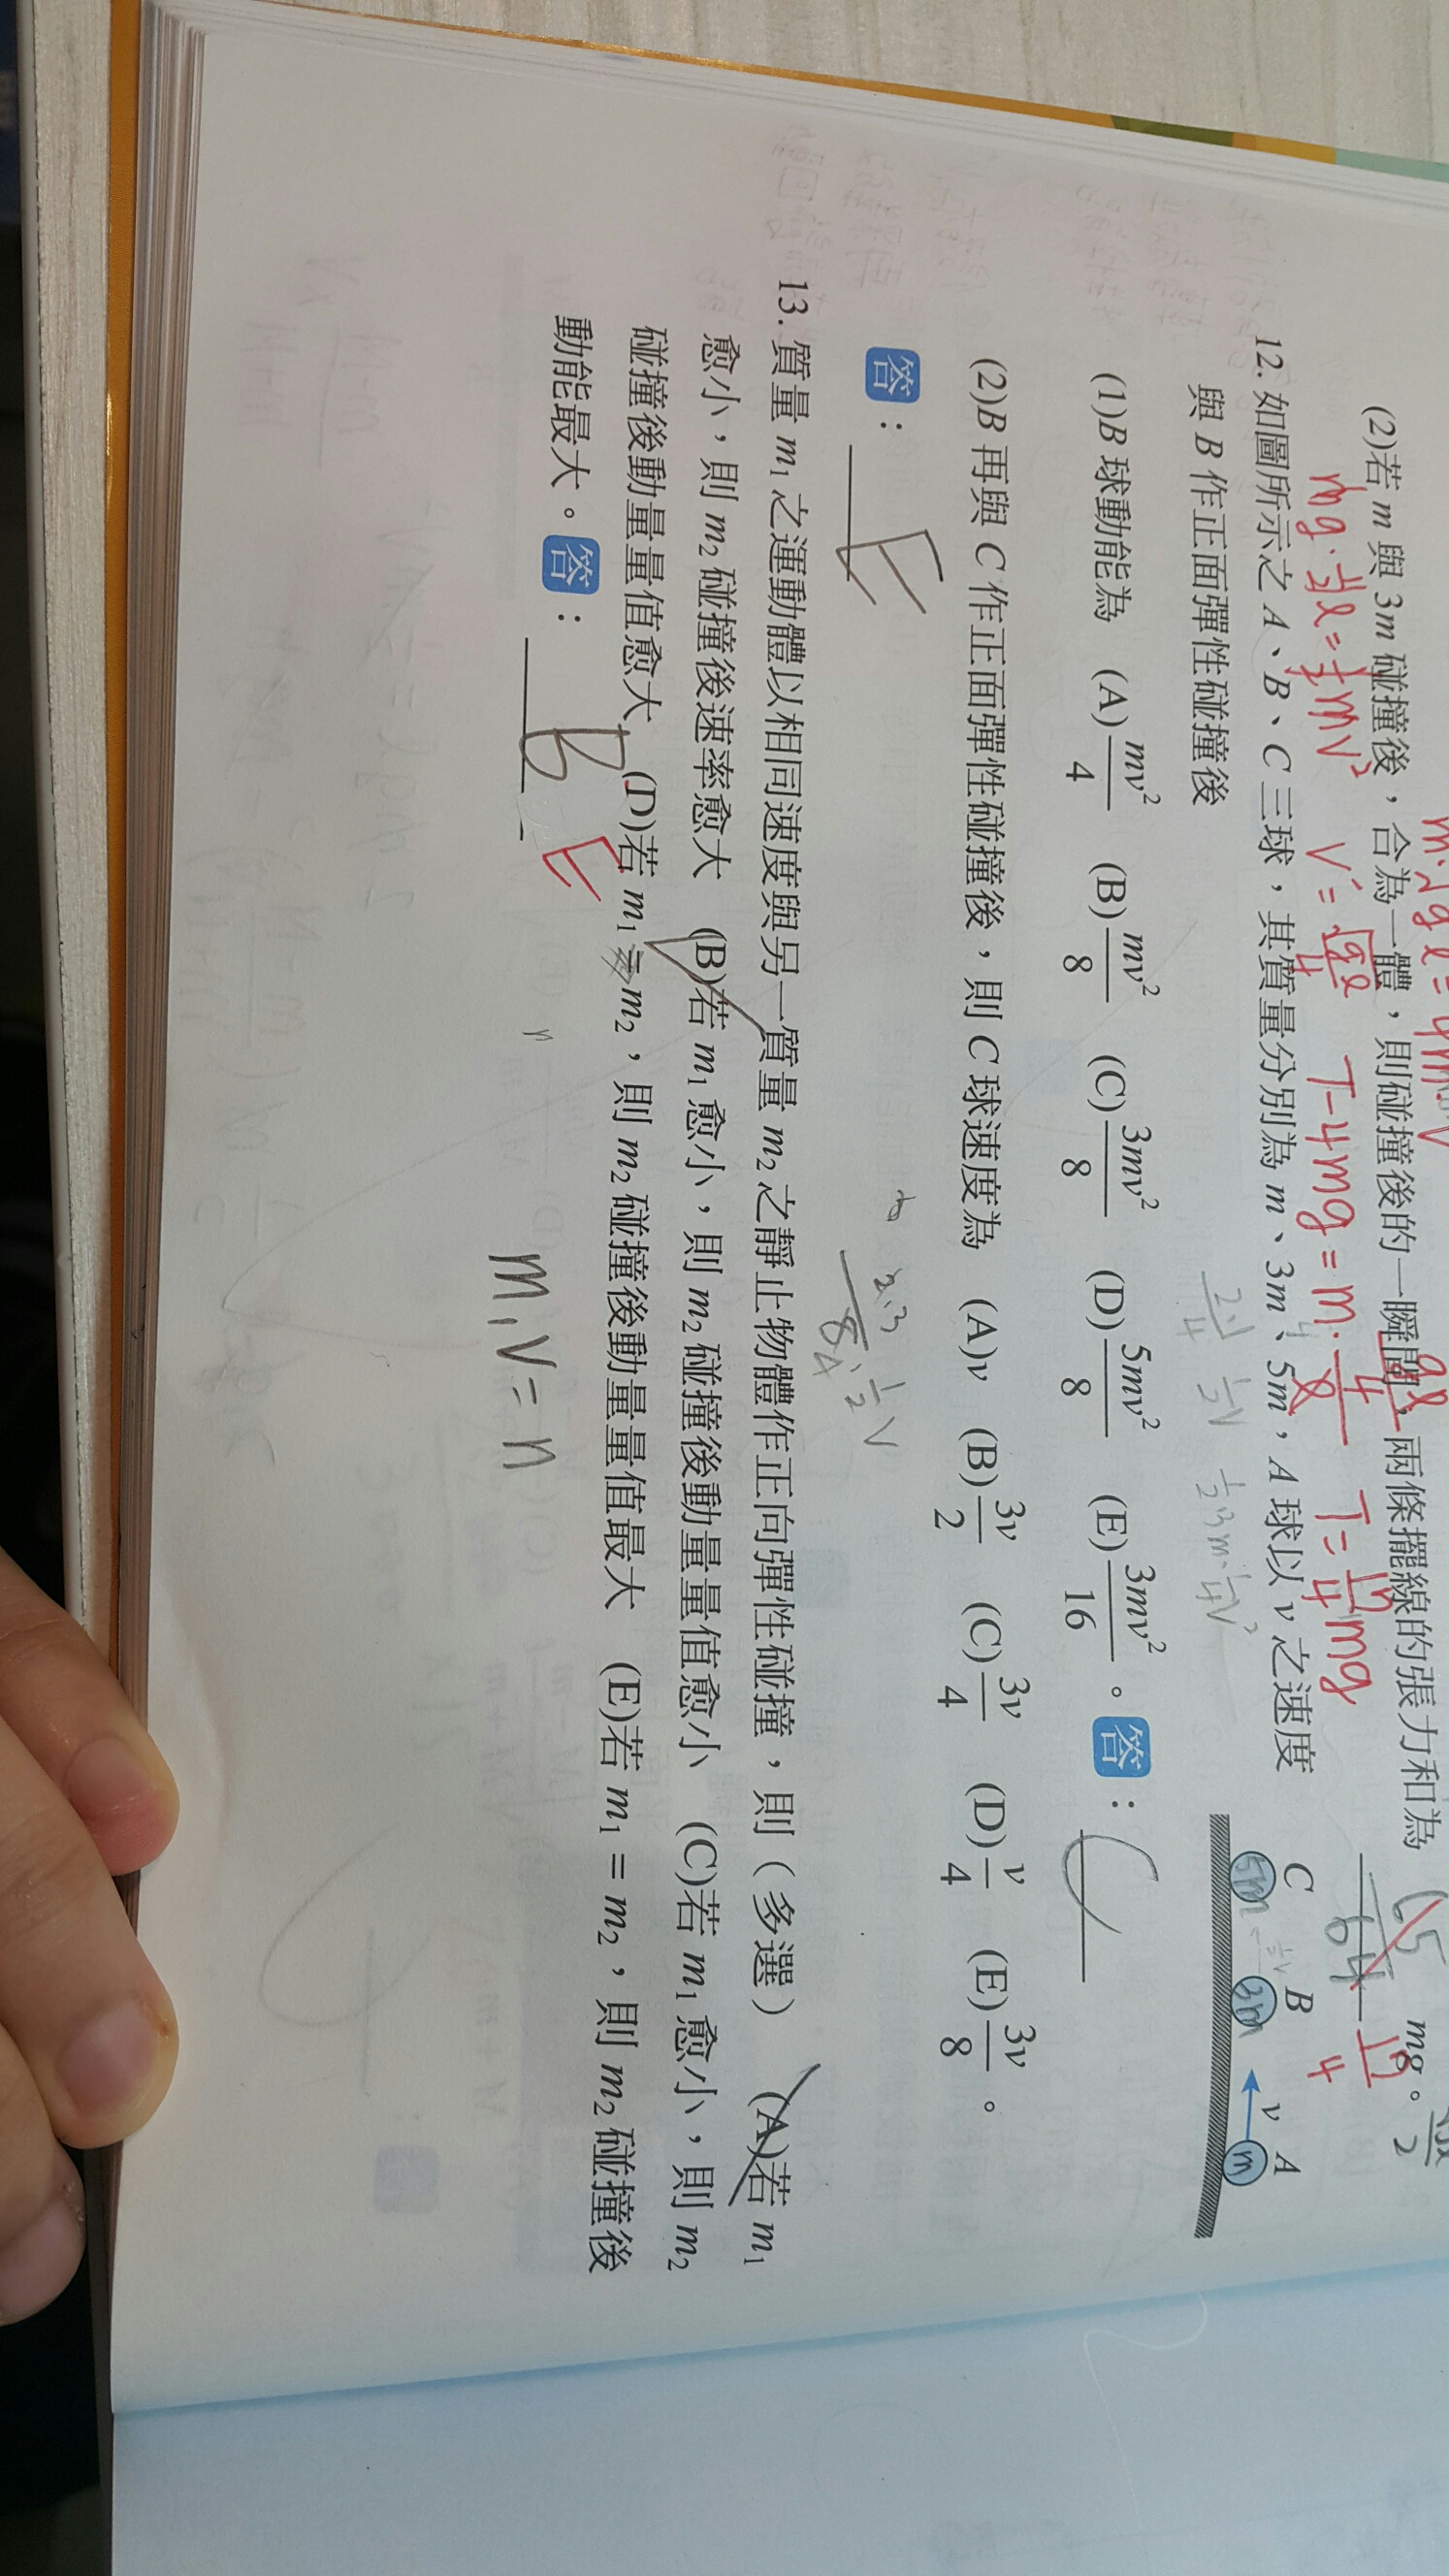 m·√gl = 4m·V
(2)若 m 與 3m 碰撞後，合為一體，則碰撞後的一瞬間，兩條擺線的張力和為 mg。
mg·½l = ½mv² V' = √gl/4 T-4mg = m· T = 17/4 mg
12. 如圖所示之 A、B、C 三球，其質量分別為 m、3m、5m，A 球以 v 之速度
與 B 作正面彈性碰撞後
C B A
v
5m 3m m
(1)B 球動能為 (A) mv²/4 (B) mv²/8 (C) 3mv²/8 (D) 5mv²/8 (E) 3mv²/16。答：C
(2)B 再與 C 作正面彈性碰撞後，則 C 球速度為 (A)v (B) 3v/2 (C) 3v/4 (D) v/4 (E) 3v/8。
答：E
2·3/8 · ½V
13. 質量 m₁ 之運動體以相同速度與另一質量 m₂ 之靜止物體作正向彈性碰撞，則（多選） (A)若 m₁
愈小，則 m₂ 碰撞後速率愈大 (B)若 m₁ 愈小，則 m₂ 碰撞後動量量值愈小 (C)若 m₁ 愈小，則 m₂
碰撞後動量量值愈大 (D)若 m₁ = m₂，則 m₂ 碰撞後動量量值最大 (E)若 m₁ = m₂，則 m₂ 碰撞後
動能最大。答：B E
m₁V = n